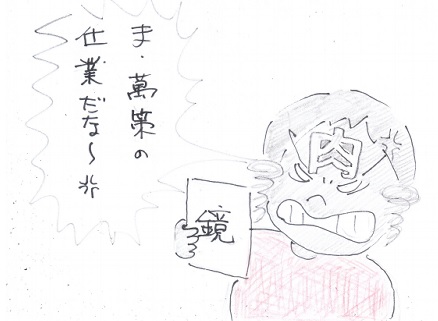 ま・萬策の
仕業だな～
肉
鏡